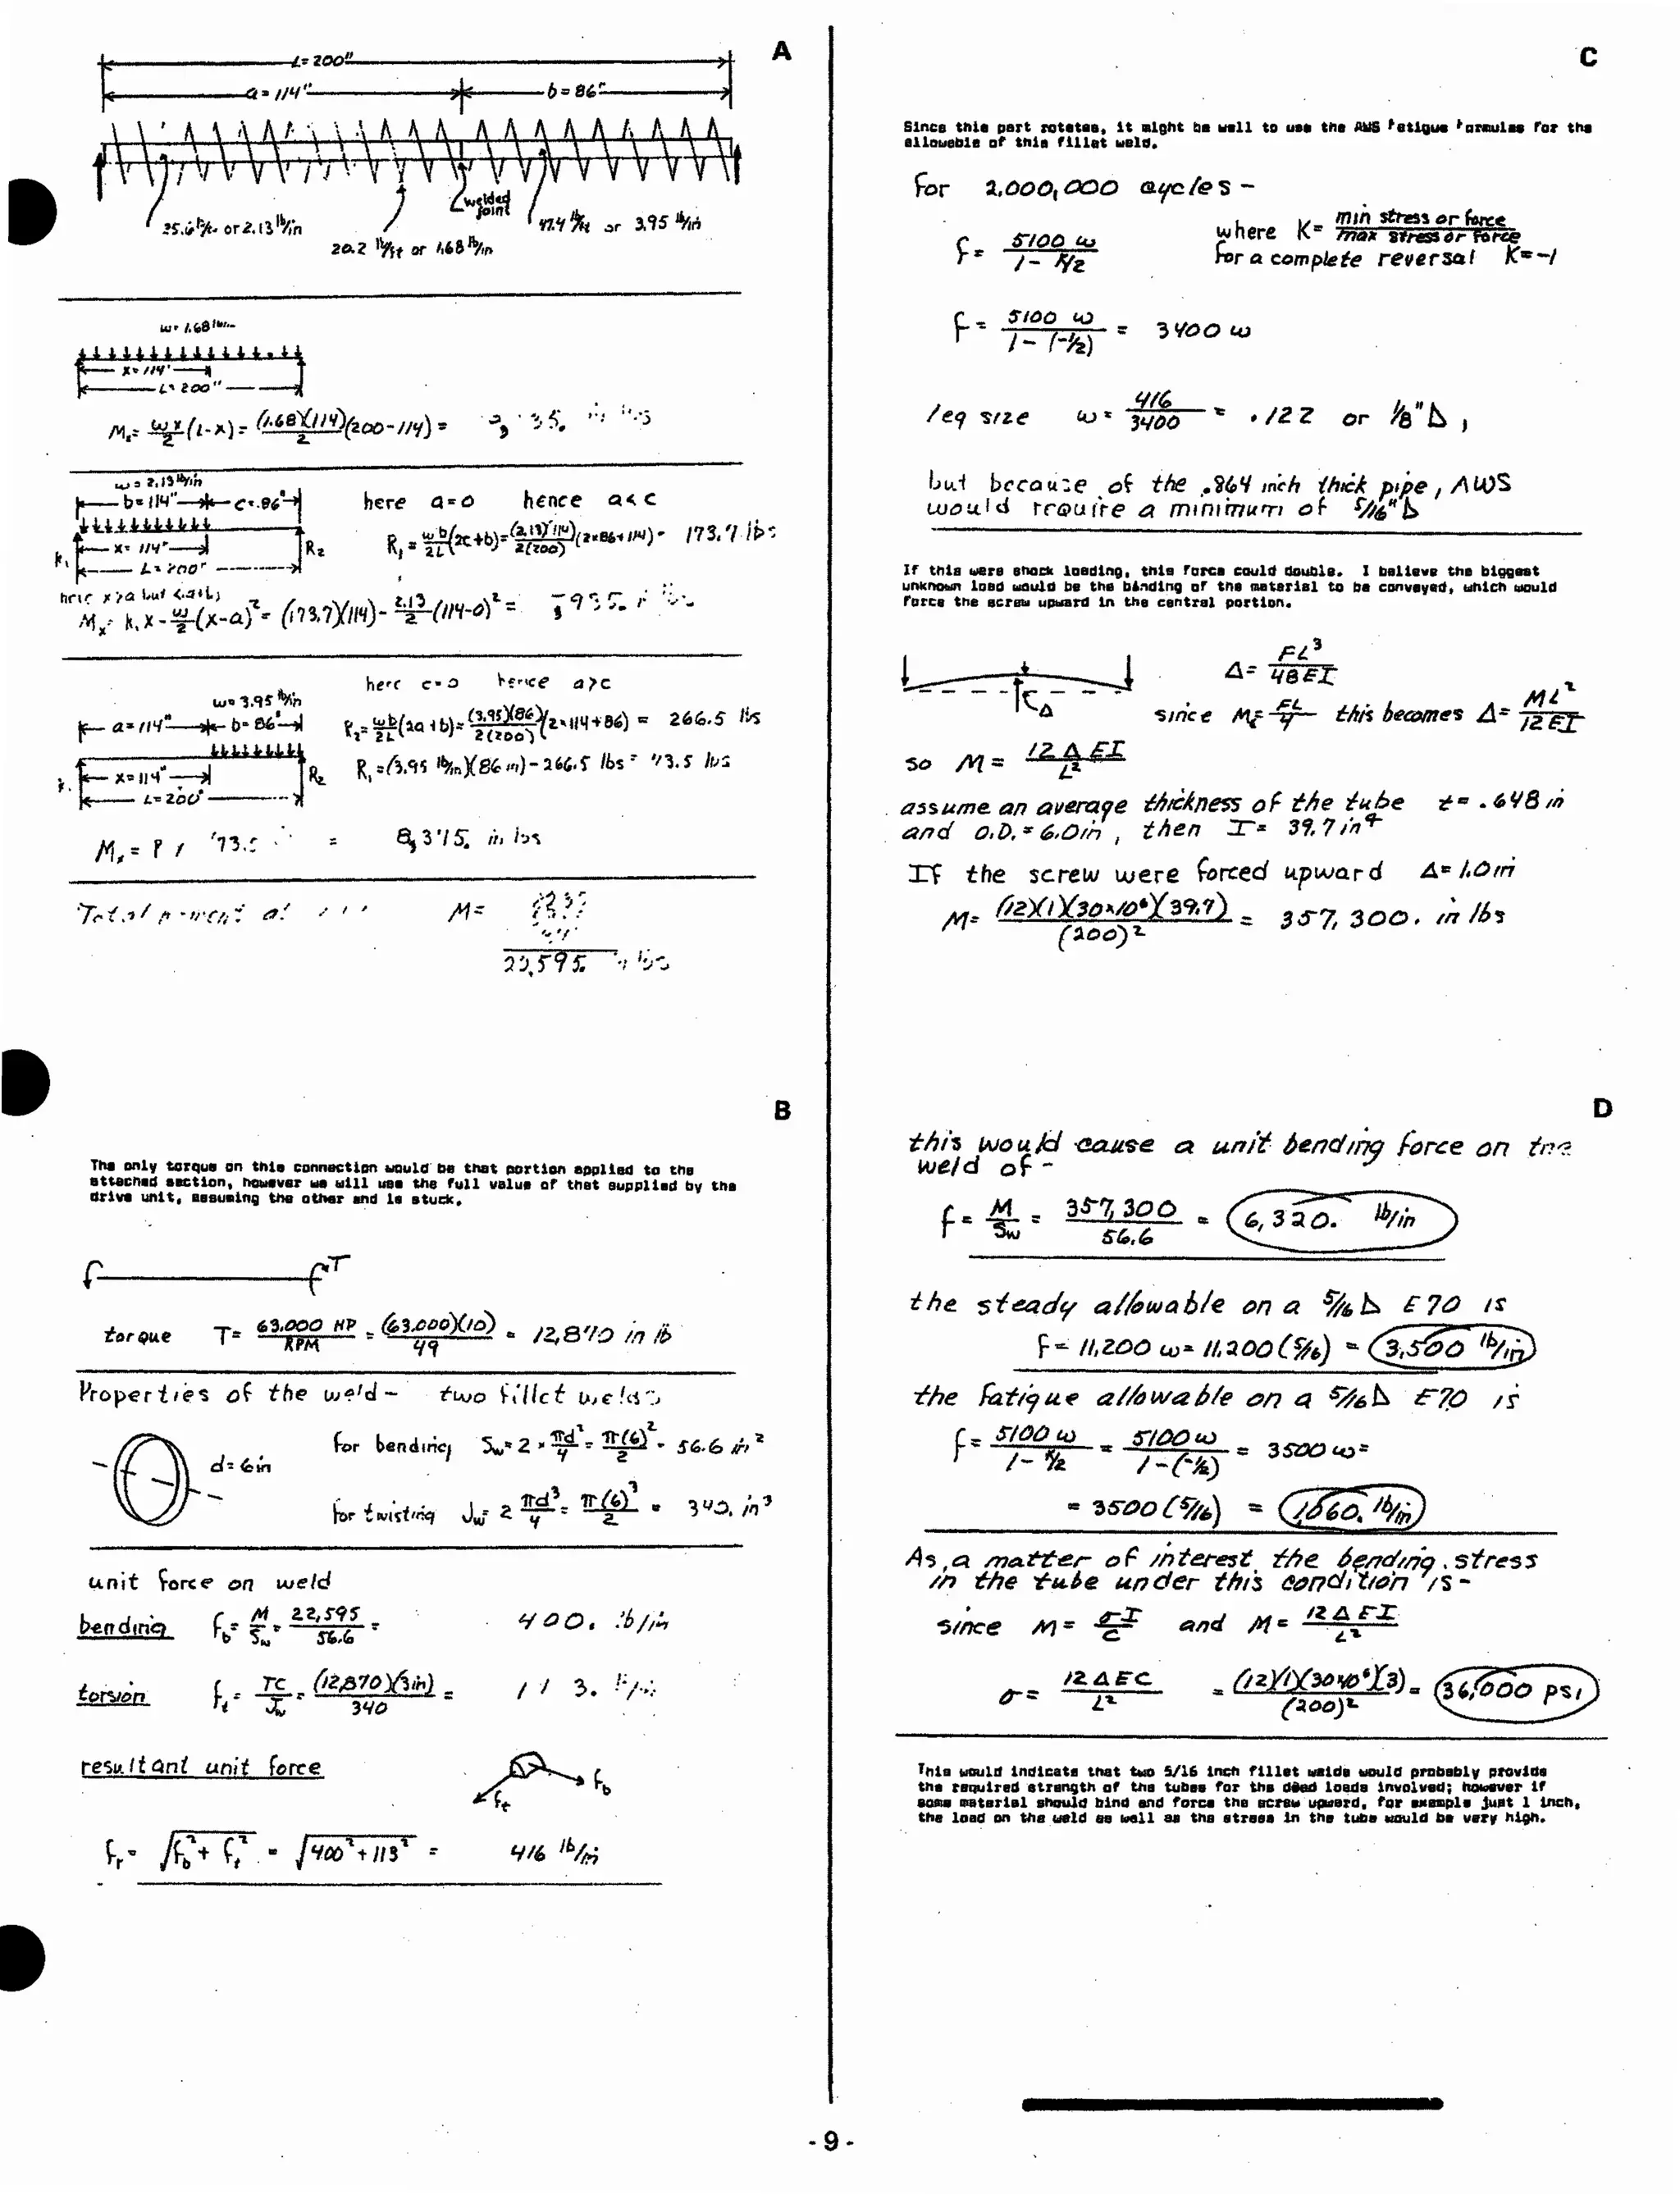 A
L=200"
a=114" b=86"
welded
joint
25.6 lb/ft or 2.13 lb/in
20.2 lb/ft or 1.68 lb/in
47.4 lb/ft or 3.95 lb/in
w=1.68 lb/in
x=114"
L=200"
Mx= wx/2 (L-x)= (1.68)(114)/2 (200-114) =
w=2.13 lb/in
b=114" c=86"
here a=0 hence a<c
R1 = wb/2L (2c+b)= (2.13)(114)/2(200) (2x86+114)= 173.7 lbs
R2
x=114"
L=200"
here x>a but <(a+b)
Mx= R1 x - w/2 (x-a)²= (173.7)(114)- 2.13/2 (114-0)² =
here c=0 hence a>c
w=3.95 lb/in
a=114" b=86"
R2= wb/2L (2a+b)= (3.95)(86)/2(200) (2x114+86) = 266.5 lbs
x=114"
R2
R1=(3.95 lb/in)(86 in)-266.5 lbs= 73.5 lbs
L=200"
Mx= = 8,375. in lbs
Total moment at M=
B
The only torque on this connection would be that portion applied to the
attached section, however we will use the full value of that supplied by the
drive unit, assuming the other end is stuck.
T
torque T= 63,000 HP/RPM = (63,000)(10)/49 = 12,870 in lb
Properties of the weld - two fillet welds
for bending Sw= 2 x πd²/4 = π(6)²/2 = 56.6 in²
d=6in
for twisting Jw= 2 πd³/4 = π(6)³/2 = 340. in³
unit force on weld
bending fb= M/Sw = 22,595/56.6 = 400. lb/in
torsion ft= TC/Jw = (12,870)(3in)/340 = 113.
resultant unit force
fb
ft
fr= √fb²+ft² = √400²+113² = 416 lb/in
C
Since this part rotates, it might be well to use the AWS Fatigue Formulas for the
allowable of this fillet weld.
For 2,000,000 cycles -
f= 5100 w/1- K/2 where K= min stress or force/max stress or force
for a complete reversal K=-1
f= 5100 w/1-(-½) = 3400 w
leg size w= 416/3400 = .122 or ⅛"⊿,
but because of the .864 inch thick pipe, AWS
would require a minimum of 5/16"⊿
If this were shock loading, this force could double. I believe the biggest
unknown load would be the binding of the material to be conveyed, which would
force the screw upward in the central portion.
Δ= FL³/48EI
Δ
since M= FL/4 this becomes Δ= ML²/12EI
so M= 12ΔEI/L²
assume an average thickness of the tube t=.648 in
and O.D.=6.0in, then I= 39.7 in⁴
If the screw were forced upward Δ=1.0in
M= (12)(1)(30x10⁶)(39.7)/(200)² = 357,300. in lbs
D
this would cause a unit bending force on the
weld of -
f= M/Sw = 357,300/56.6 = 6,320. lb/in
the steady allowable on a 5/16⊿ E70 is
f= 11,200 w= 11,200(5/16) = 3,500 lb/in
the fatigue allowable on a 5/16⊿ E70 is
f= 5100 w/1- K/2 = 5100 w/1-(-½) = 3500 w=
= 3500(5/16) = 1,060. lb/in
As a matter of interest the bending stress
in the tube under this condition is -
since M= σI/c and M= 12ΔEI/L²
σ= 12ΔEC/L² = (12)(1)(30x10⁶)(3)/(200)² = 36,000 psi
This would indicate that two 5/16 inch fillet welds would probably provide
the required strength of the tubes for the dead loads involved; however if
some material should bind and force the screw upward, for example just 1 inch,
the load on the weld as well as the stress in the tube would be very high.
- 9 -